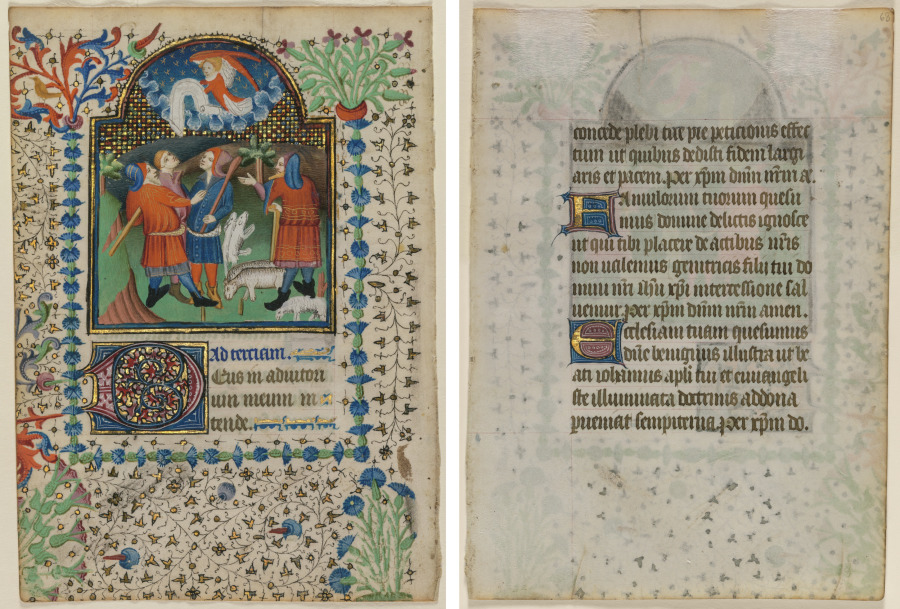 Ad terciam.
Deus in adiutori
um meum in
tende.
68
concede plebi tue pie peticionis effec
tum ut quibus dedisti fidem largi
aris et pacem. Per xp̄m dn̄m nr̄m a.
Famulorum tuorum quesu
mus domine delictis ignosce
ut qui tibi placere de actibus nr̄is
non ualemus genitricis filii tui do
mini nr̄i ih̄u xp̄i intercessione sal
uemur. Per xp̄m dn̄m nr̄m amen.
Ecclesiam tuam quesumus
dn̄e benignus illustra ut be
ati iohannis apl̄i tui et euuangeli
ste illuminata doctrinis ad dona
perueniat sempiterna. Per xp̄m do.